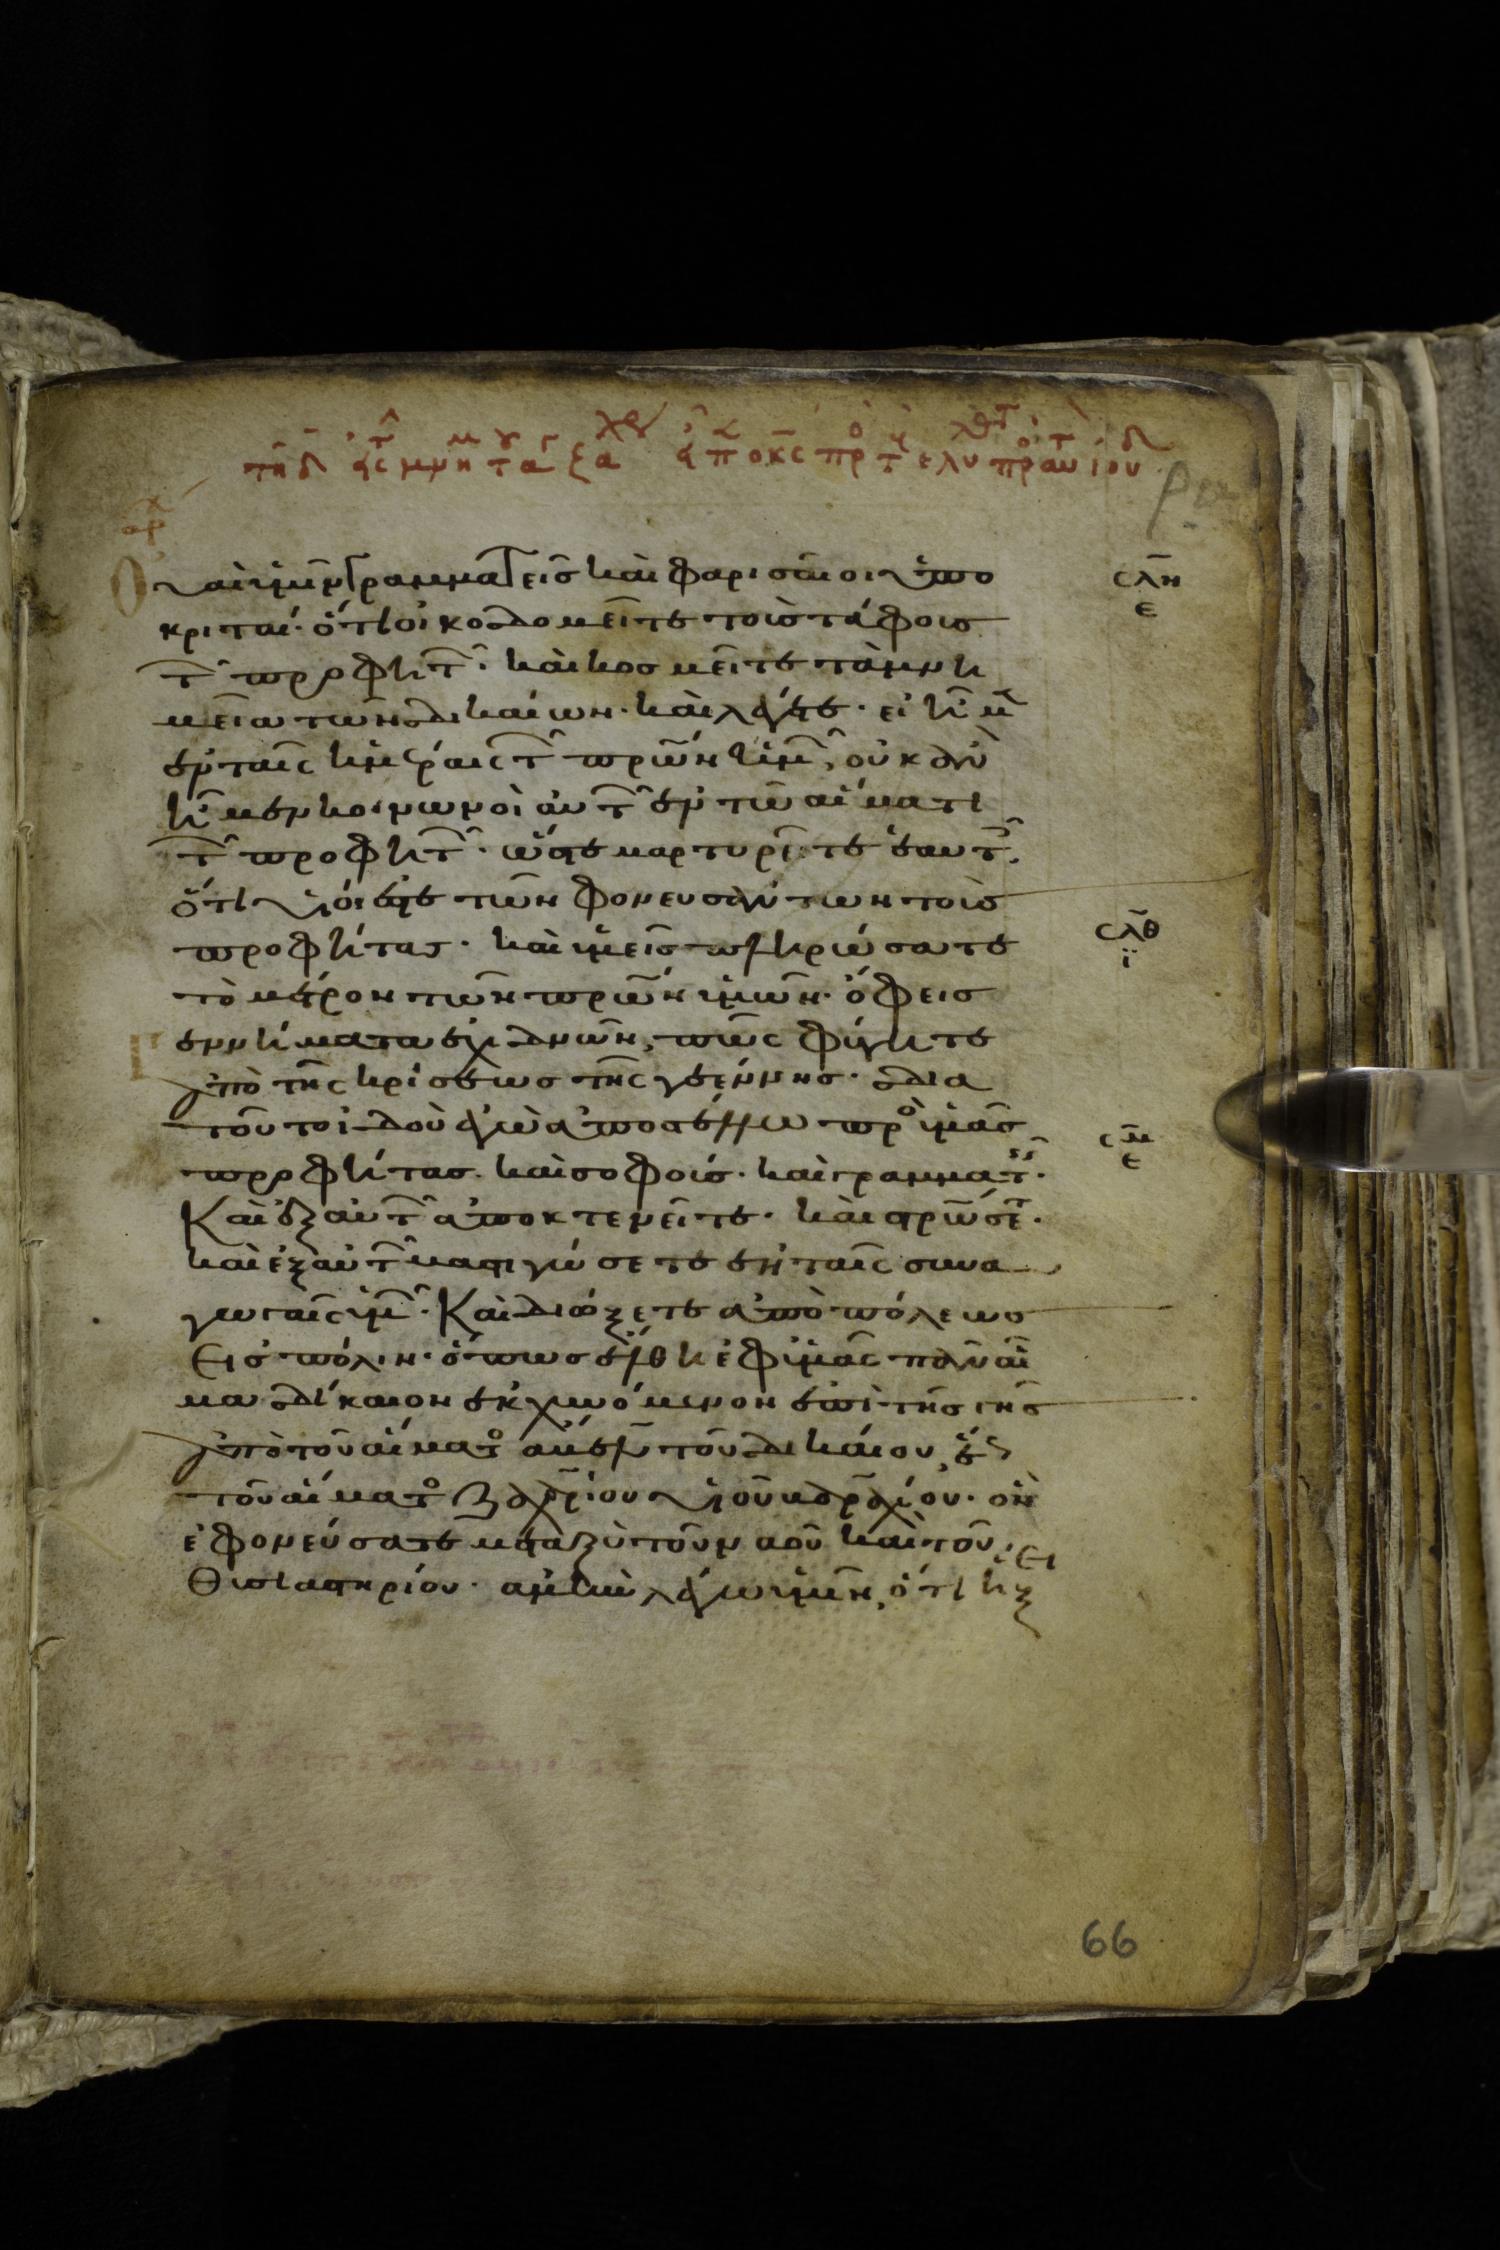 Οὐαὶ ὑμῖν γραμματεῖς καὶ φαρισαῖοι ὑπο
κριταί· ὅτι οἰκοδομεῖτε τοὺς τάφους
τῶν προφητῶν· καὶ κοσμεῖτε τὰ μνη
μεῖα τῶν δικαίων· καὶ λέγετε· εἰ ἦμεν
ἐν ταῖς ἡμέραις τῶν πρων ἡμῶν, οὐκ ἂν
ἦμεν κοινωνοὶ αὐτῶν ἐν τῶ αἵματι
τῶν προφητῶν· ὥστε μαρτυρεῖτε ἑαυτοῖς,
ὅτι υἱοί ἐστε τῶν φονευσάντων τοὺς
προφήτας· καὶ ὑμεῖς πληρώσατε
τὸ μέτρον τῶν πρων ὑμῶν· ὄφεις
γεννήματα ἐχιδνῶν, πῶς φύγητε
ἀπὸ τῆς κρίσεως τῆς γεέννης· δια
τοῦτο ἰδοὺ ἐγὼ ἀποστέλλω πρὸς ὑμᾶς
προφήτας· καὶ σοφούς· καὶ γραμματεῖς·
Καὶ ἐξ αὐτῶν ἀποκτενεῖτε· καὶ σταυρώσετε·
καὶ ἐξ αὐτῶν μαστιγώσετε ἐν ταῖς συνα
γωγαῖς ὑμῶν· Καὶ διώξετε ἀπὸ πόλεως
εἰς πόλιν· ὅπως ἔλθη ἐφ ὑμᾶς πᾶν αἷ
μα δίκαιον ἐκχυνόμενον ἐπὶ τῆς γῆς
ἀπὸ τοῦ αἵματος ἄβελ τοῦ δικαίου, ἕως
τοῦ αἵματος ζαχαρίου υἱοῦ βαραχίου· ὃν
ἐφονεύσατε μεταξὺ τοῦ ναοῦ καὶ τοῦ
θυσιαστηρίου· ἀμὴν λέγω ὑμῖν, ὅτι ἥξει
σλη
ε
σλθ
ϊ
σμ
ε
66